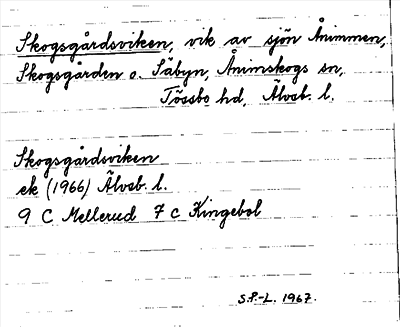 Skogsgårdsviken, vik av sjön Ånimmen,
Skogsgården o. Säbyn, Ånimskogs sn,
Tössbo hd, Älvsb. l.
Skogsgårdsviken
ek (1966) Älvsb. l.
9 C Mellerud 7 c Kingebol
S.P.-L. 1967.